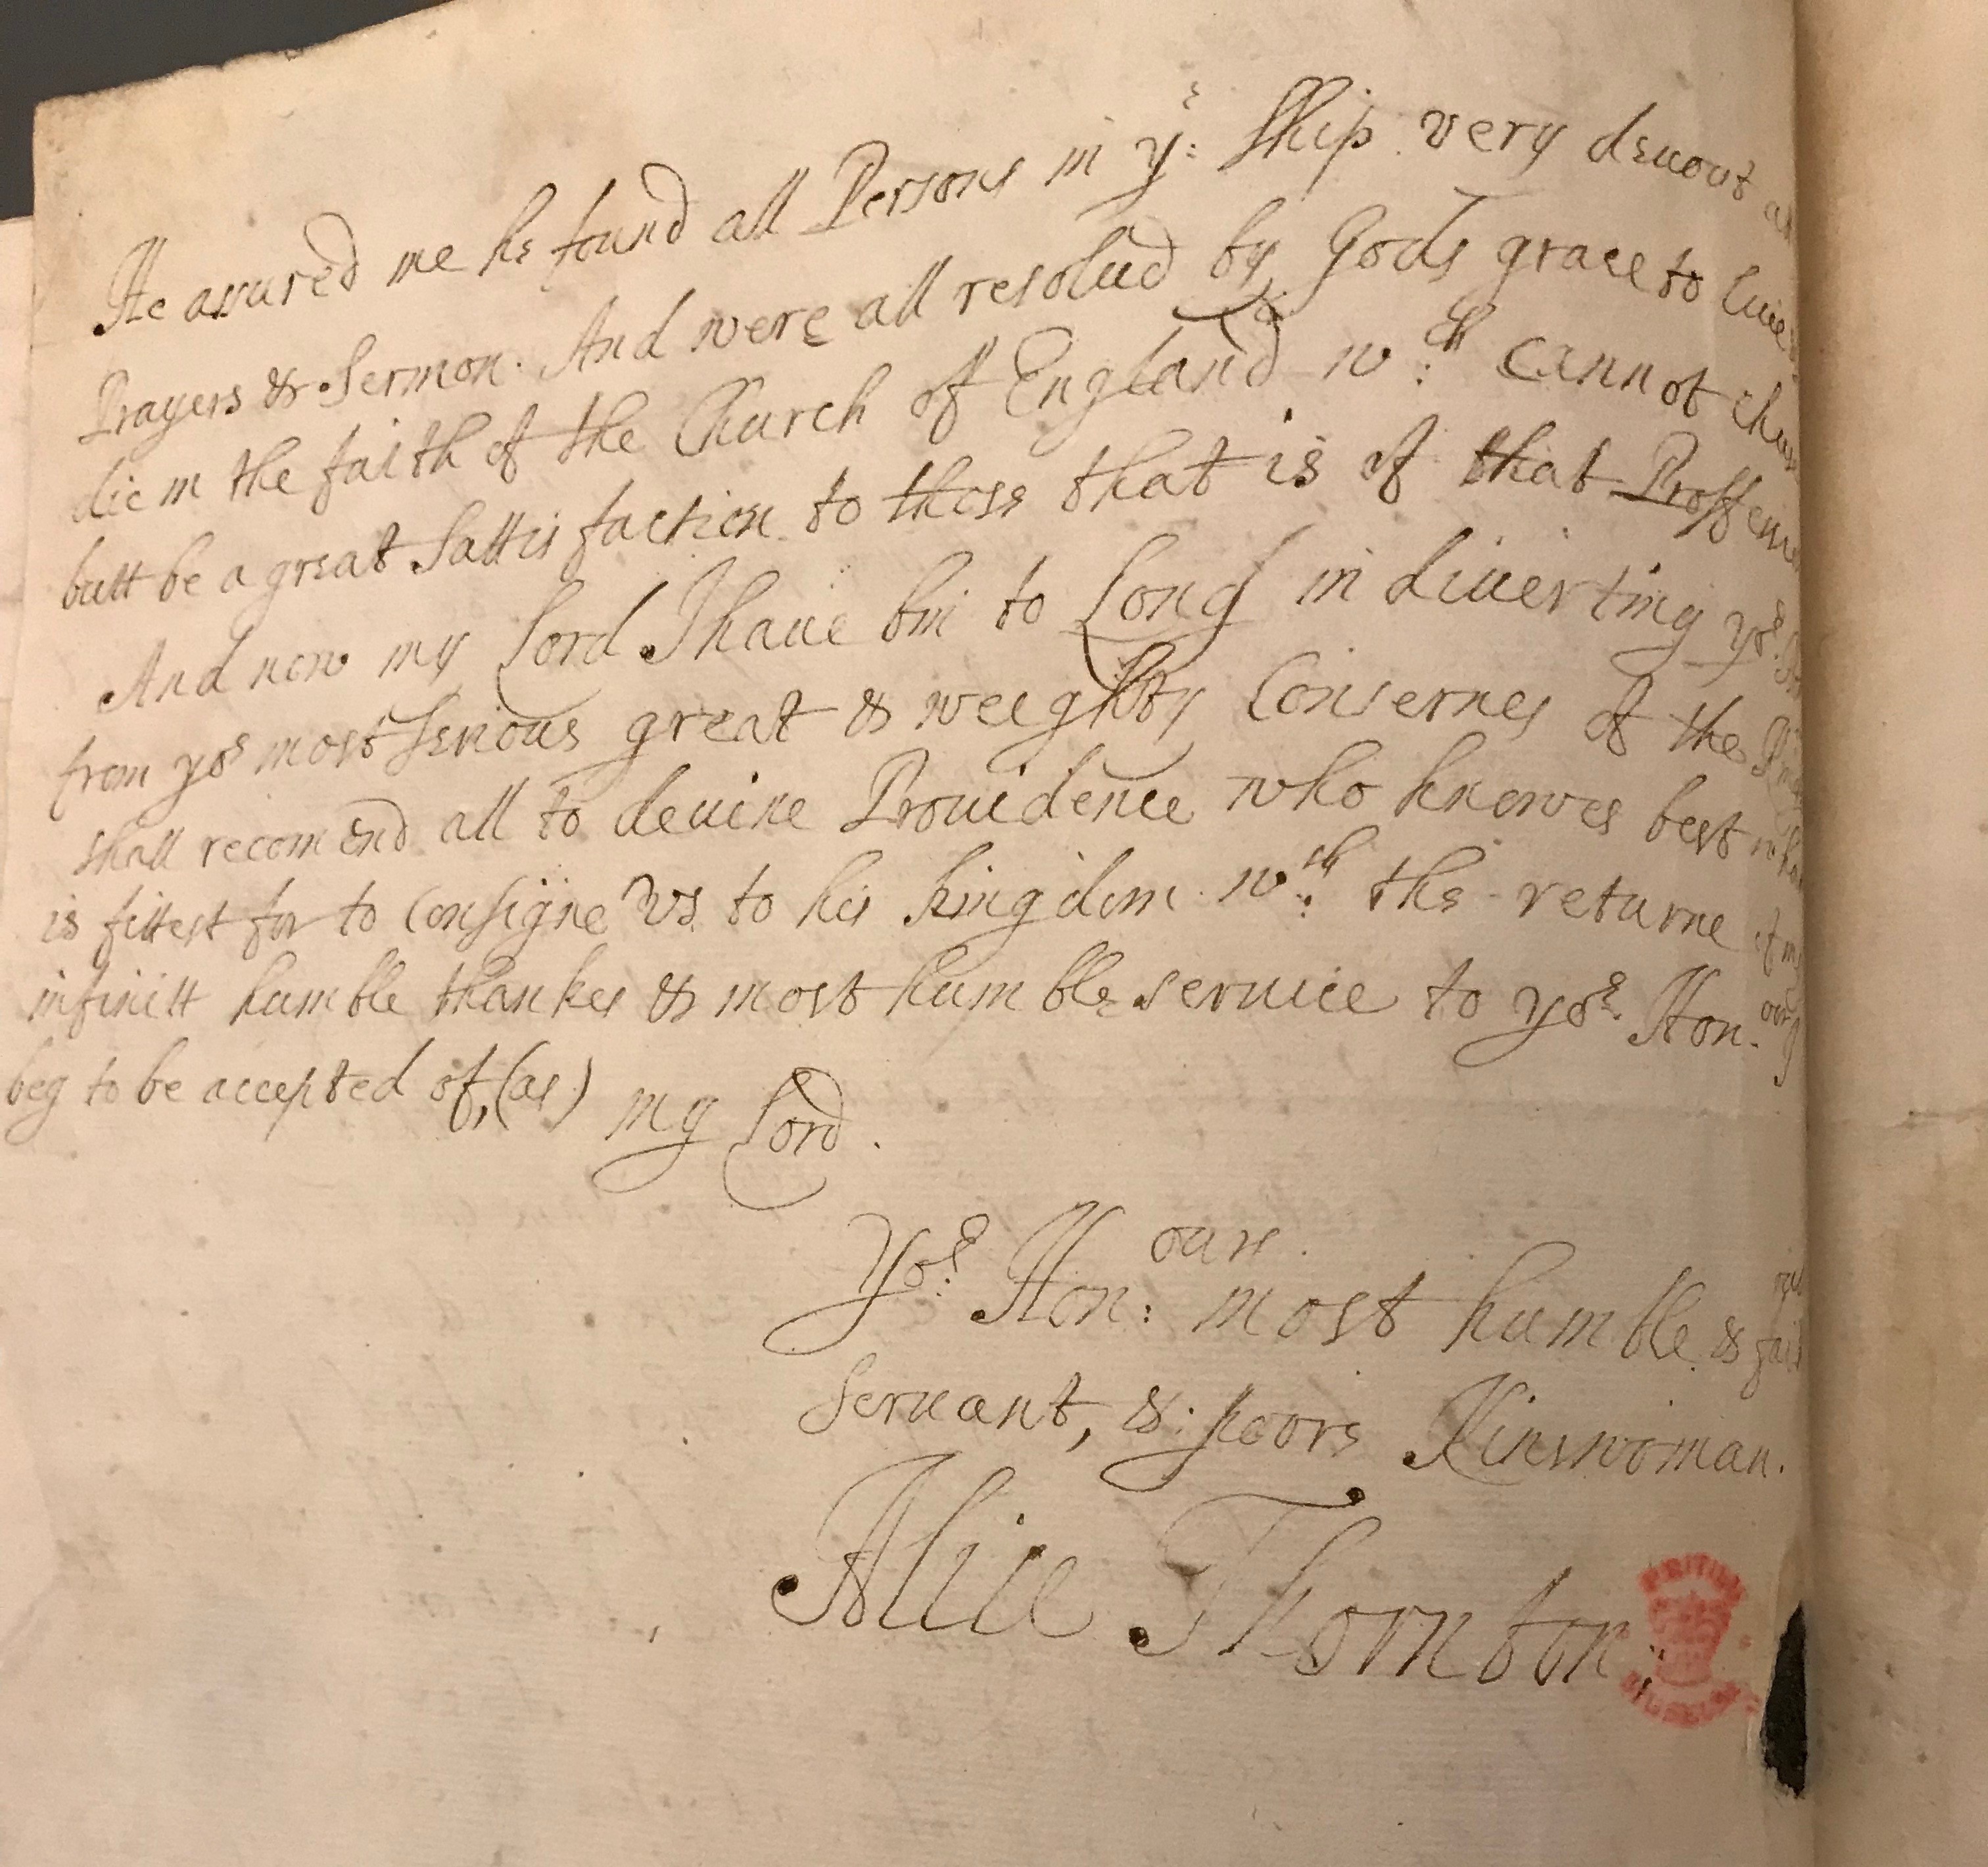 He assured me he found all Persons in yᵉ: Ship very deuout
Prayers & Sermon. And were all resolud by Gods grace to liue
die in the faith of the Church of England wᶜʰ: cannot
butt be a great Sattisfaction to those that is of that
And now my Lord I haue bin to Long in diuerting yoʳ.
from yoʳ most Serious great & weighty Consernes of the
shall recomend all to deuine Prouidence who knowes best
is fittest for to Consigne Vs to his kingdom. wᵗʰ: the returne of my
infinitt humble thankes & most humble seruice to yoʳ. Hon.ᵒᵘʳ I
beg to be accepted of, (as) my Lord.
Yoʳ: Hon:ᵒᵘʳˢ. most humble &
Seruant, &: poore Kinswoman.
Alice Thornton:
BRITISH
MUSEUM